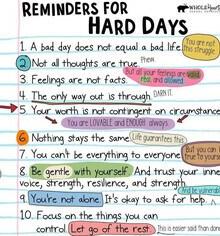 REMINDERS FOR
HARD DAYS
WHOLEHearted
1. A bad day does not equal a bad life.
You are not this struggle
2. Not all thoughts are true. Phew.
3. Feelings are not facts.
But all your feelings are valid, real, and allowed.
4. The only way out is through. DARN IT.
5. Your worth is not contingent on circumstance
You are LOVABLE and ENOUGH always
6. Nothing stays the same. Life guarantees this
7. You can't be everything to everyone.
But you can
true to yourse
8. Be gentle with yourself. And trust your inner
voice, strength, resilience, and strength.
9. You're not alone. It's okay to ask for help.
And be vulnerabl
10. Focus on the things you can
control. Let go of the rest. This is easier said than done